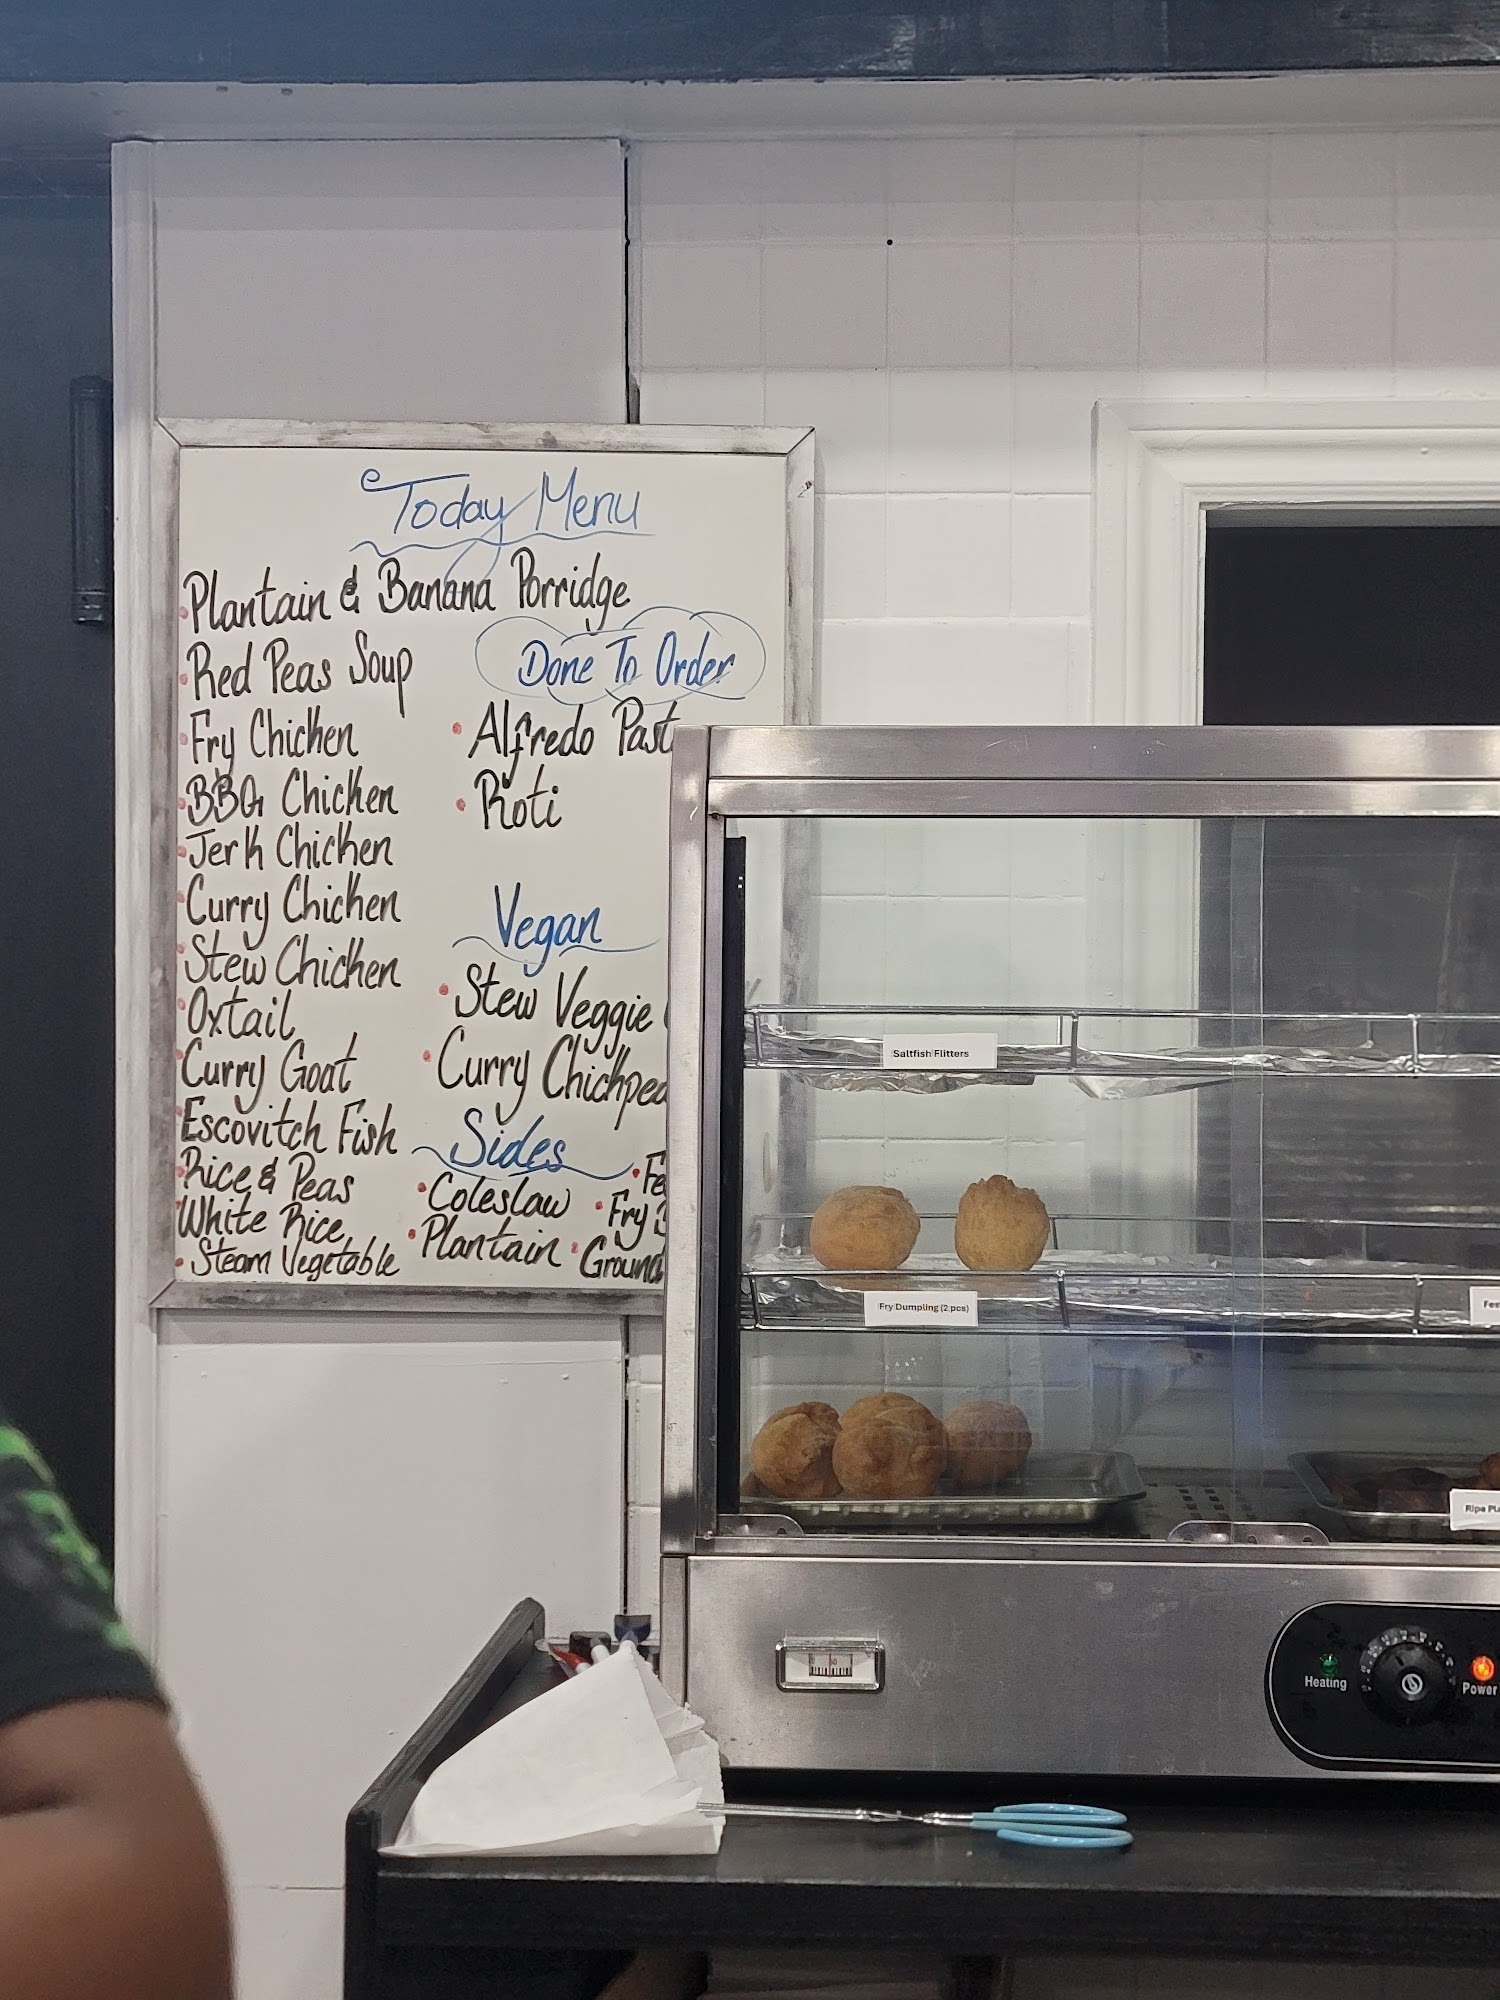 Today Menu
Plantain & Banana Porridge
Red Peas Soup
Fry Chicken
BBQ Chicken
Jerk Chicken
Curry Chicken
Stew Chicken
Oxtail
Curry Goat
Escovitch Fish
Rice & Peas
White Rice
Steam Vegetable
Done To Order
Alfredo Past
Roti
Vegan
Stew Veggie
Curry Chickpea
Sides
Coleslaw
Plantain
Fe
Fry
Ground
Saltfish Flitters
Fry Dumpling (2 pcs)
Fes
Ripe Pla
Heating
Power